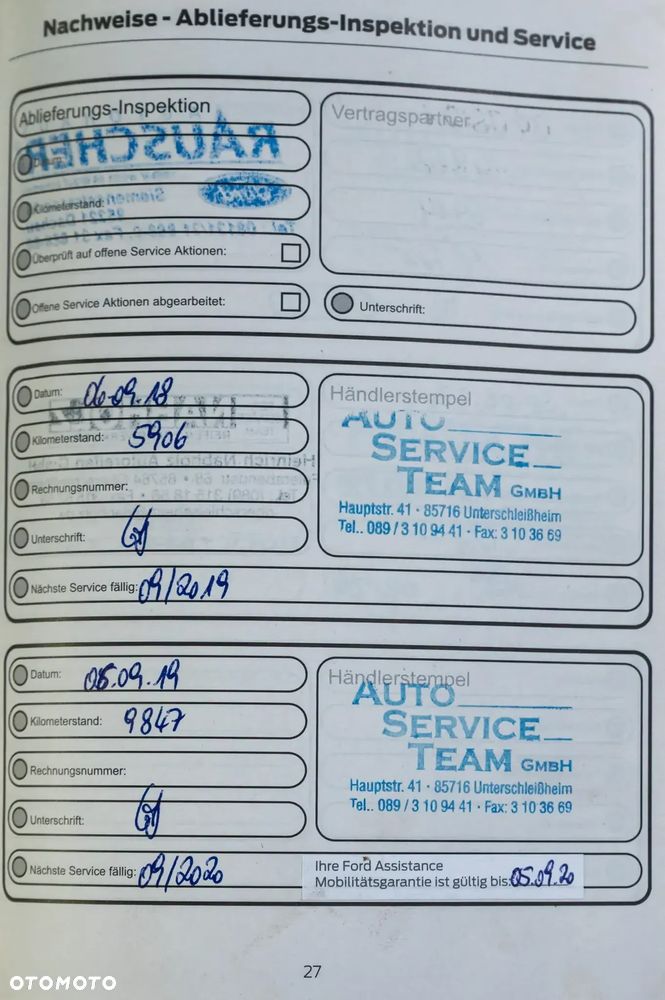 Nachweise - Ablieferungs-Inspektion und Service
Ablieferungs-Inspektion
Vertragspartner
Datum:
RAUSCHER
Kilometerstand:
Überprüft auf offene Service Aktionen:
Offene Service Aktionen abgearbeitet:
Unterschrift:
Datum: 06.09.18
Kilometerstand: 5906
Rechnungsnummer:
Unterschrift:
Nächste Service fällig: 09/2019
Händlerstempel
AUTO
SERVICE
TEAM GMBH
Hauptstr. 41 · 85716 Unterschleißheim
Tel.. 089 / 3 10 94 41 · Fax: 3 10 36 69
Datum: 05.09.19
Kilometerstand: 9847
Rechnungsnummer:
Unterschrift:
Nächste Service fällig: 09/2020
Händlerstempel
AUTO
SERVICE
TEAM GMBH
Hauptstr. 41 · 85716 Unterschleißheim
Tel.. 089 / 3 10 94 41 · Fax: 3 10 36 69
Ihre Ford Assistance
Mobilitätsgarantie ist gültig bis: 05.09.20
27
OTOMOTO